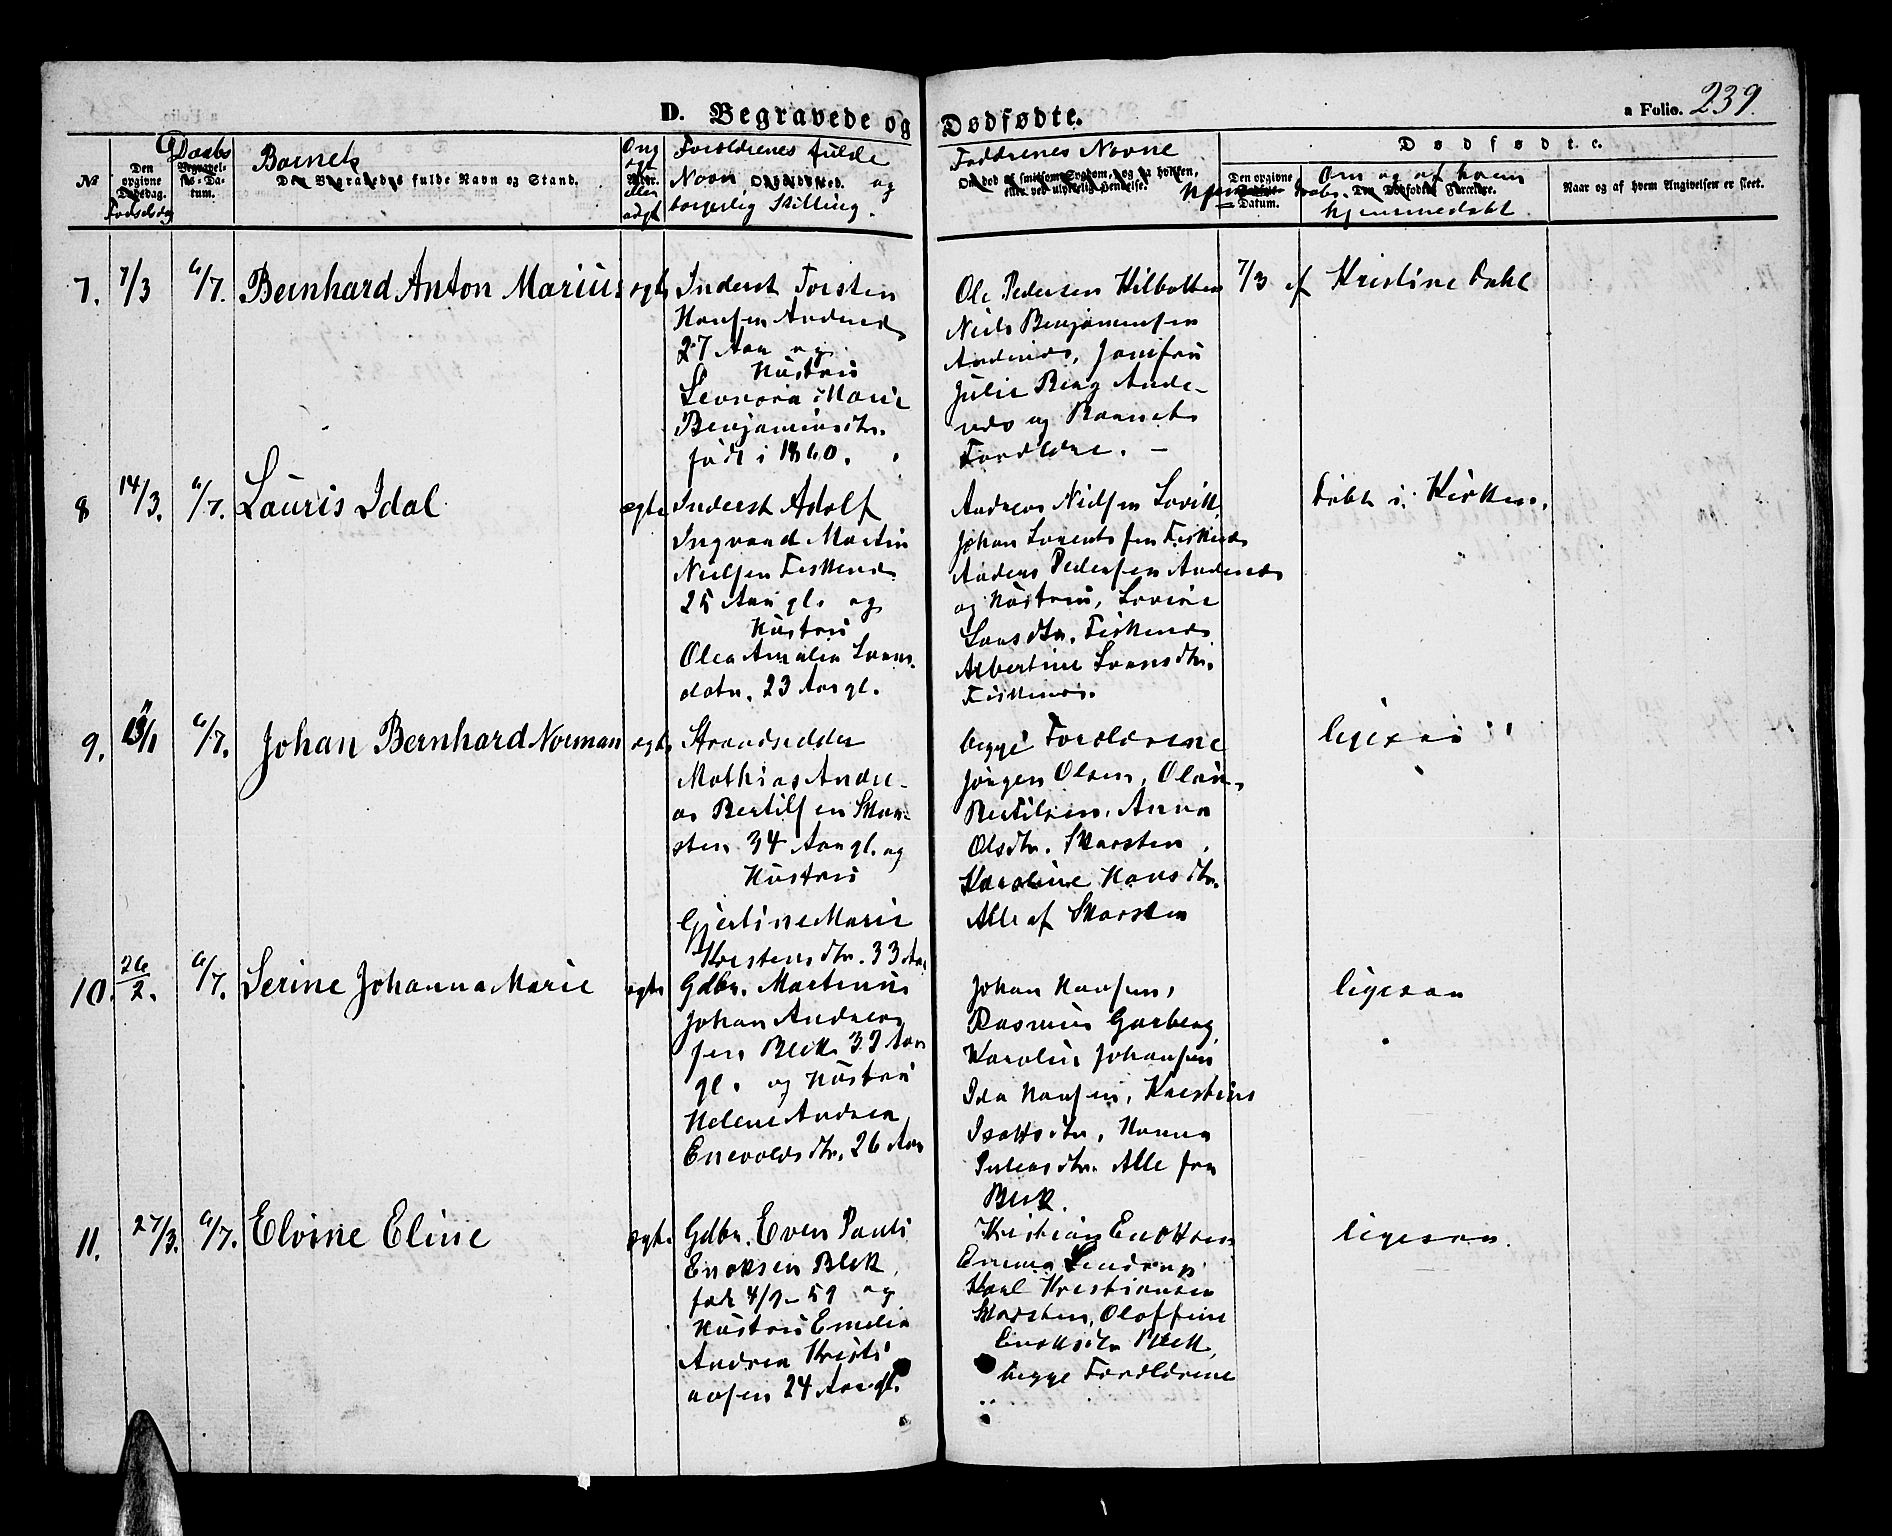 D. Begravede og Dødfødte.
a Folio. 239.
Daabs
Barnets
Forældrenes fulde
Navn og
borgerlig Stilling.
Faddrenes Navne
Dødfødte.
No
Den opgivne Dødsdag.
Fødselsdag
Begravelses-Datum.
Den Begravedes fulde Navn og Stand.
eller
Den opgivne Datum.
Om og af hvem
hjemmedøbt
Naar og af hvem Angivelsen er skeet.
7. 7/3 6/7. Bernhard Anton Marius ægte
Inderst Torsten
Hansen Andenes
27 Aar og
Hustru
Leonora Marie
Benjaminsdtr.
født i 1860.
Ole Pedersen Kilbotten
Niels Benjaminsen
Andenes, Jomfru
Julie Berg Ande-
nes og Barnets
Forældre. —
7/3 af Kristine Dahl
8 14/3. 6/7. Lauris Idal ægte
Inderst Adolf
Ingvard Martin
Nielsen Fiskenes
25 Aar gl. og
Hustru
Olea Amalia Lars-
datr. 23 Aar gl.
Andreas Nielsen Lovik
Johan Lorentsen Fiskenes
Anders Pedersen Andenes
og Hustru, Lovise
Larsdtr. Fiskenes
Albertine Larsdtr.
Fiskenes.
Døbt i Kirken.
9. 6/7. Johan Bernhard Norman ægte
Strandsidder
Mathias Andre-
as Bertilsen Skar-
sten 34 Aar gl. og
Hustru
Gjertine Marie
Torstensdtr. 33 Aar
begge Forældrene
Jørgen Olsen,
Bertilsen, Anna
Olsdtr. Skarsten,
Karoline Hansdtr.
Alle af Skarsten
ligesaa
10. 26/2. 6/7. Serine Johanna Marie ægte
Gdbr. Martinus
Johan Andreas
sen Bleik 33 Aar
gl. og Hustru
Helene Andrea
Enevoldsdtr. 26 Aar
Johan Hansen,
Rasmus Garberg,
Karolius Johansen
Ida Hansen, Kristine
Isaksdtr, Hanna
Alle fra
Bleik.
ligesaa
11. 27/3. 6/7. Elvine Eline ægte
Gdbr. Even Pauli
Enoksen Bleik,
født 4/9-59 og
Hustru Emelie
Andrea Kristi
ansen 24 Aar gl.
Kristian Enoksen
Emma
Karl Kristiansen
Skarsten, Oloffine
Enoksdtr Bleik,
begge Forældrene
ligesaa.